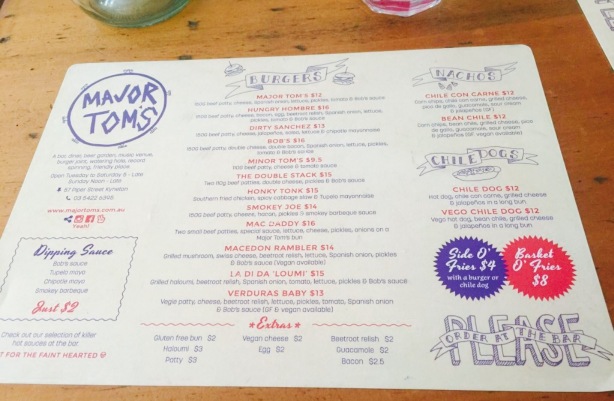 MAJOR
TOM'S
A bar, diner, beer garden, music venue,
burger joint, watering hole, record
spinning, friendly place
Open Tuesday to Saturday 5 - Late
Sunday Noon - Late
57 Piper Street Kyneton
03 5422 6395
www.majortoms.com.au
Yeah!
Dipping Sauce
Bob's sauce
Tupelo mayo
Chipotle mayo
Smokey barbeque
Just $2
Check out our selection of killer
hot sauces at the bar
T FOR THE FAINT HEARTED
BURGERS
MAJOR TOM'S $12
150g beef patty, cheese, Spanish onion, lettuce, pickles, tomato & Bob's sauce
HUNGRY HOMBRE $16
150g beef patty, cheese, bacon, egg, beetroot relish, Spanish onion, lettuce,
pickles, tomato & Bob's sauce
DIRTY SANCHEZ $13
150g beef patty, cheese, jalapeños, salsa, lettuce & chipotle mayonnaise
BOB'S $16
150g beef patty, double cheese, double bacon, Spanish onion, lettuce, pickles,
tomato & Bob's sauce
MINOR TOM'S $9.5
beef patty, cheese & tomato sauce
THE DOUBLE STACK $15
Two beef patties, double cheese, pickles & Bob's sauce
HONKY TONK $15
Southern fried chicken, spicy cabbage slaw & Tupelo mayonnaise
SMOKEY JOE $14
150g beef patty, cheese, bacon, pickles & smokey barbeque sauce
MAC DADDY $16
Two small beef patties, special sauce, lettuce, cheese, pickles, onions on a
Major Tom's bun
MACEDON RAMBLER $14
Grilled mushroom, swiss cheese, beetroot relish, lettuce, Spanish onion, pickles
& Bob's sauce (Vegan available)
LA DI DA 'LOUMI' $15
Grilled haloumi, beetroot relish, Spanish onion, tomato, lettuce, pickles & Bob's sauce
VERDURAS BABY $13
Vegie patty, cheese, beetroot relish, lettuce, pickles, tomato, Spanish onion
& Bob's sauce (GF & vegan available)
Extras
Gluten free bun $2
Vegan cheese $2
Beetroot relish $2
Haloumi $3
Egg $2
Guacamole $2
Patty $3
Bacon $2.5
NACHOS
CHILE CON CARNE $12
Corn chips, chile con carne, grilled cheese,
pico de gallo, guacamole, sour cream
& jalapeños (GF)
BEAN CHILE $12
Corn chips, bean chile, grilled cheese, pico
de gallo, guacamole, sour cream
& jalapeños (GF, vegan available)
CHILE DOGS
CHILE DOG $12
Hot dog, chile con carne, grilled cheese
& jalapeños in a long bun
VEGO CHILE DOG $12
Vego hot dog, bean chile, grilled cheese
& jalapeños in a long bun
Side O'
Fries $4
with a burger or
chile dog
Basket
O' Fries
$8
PLEASE
ORDER AT THE BAR